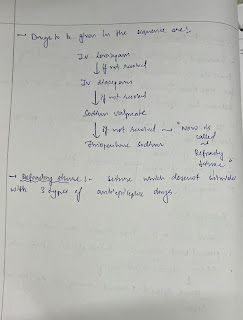 → Drugs to be given in the sequence are:-
IV lorazepam
↓ if not resolved
IV diazepam
↓ if not resolved
Sodium valproate
↓ if not resolved → "Now is
called
as
Refractory
seizure"
Thiopentone sodium
→ Refractory seizure :- seizure which doesnot subsides
with 3 types of antiepileptic drugs.